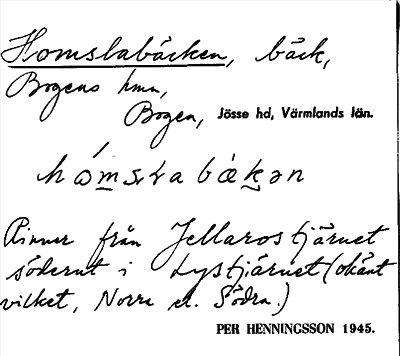 Homslabäcken, bäck,
Bogens hmn,
Bogen, Jösse hd, Värmlands län.
Rinner från Jellarostjärnet
söderut i Lystjärnet (okänt
vilket, Norra el. Södra.)
PER HENNINGSSON 1945.